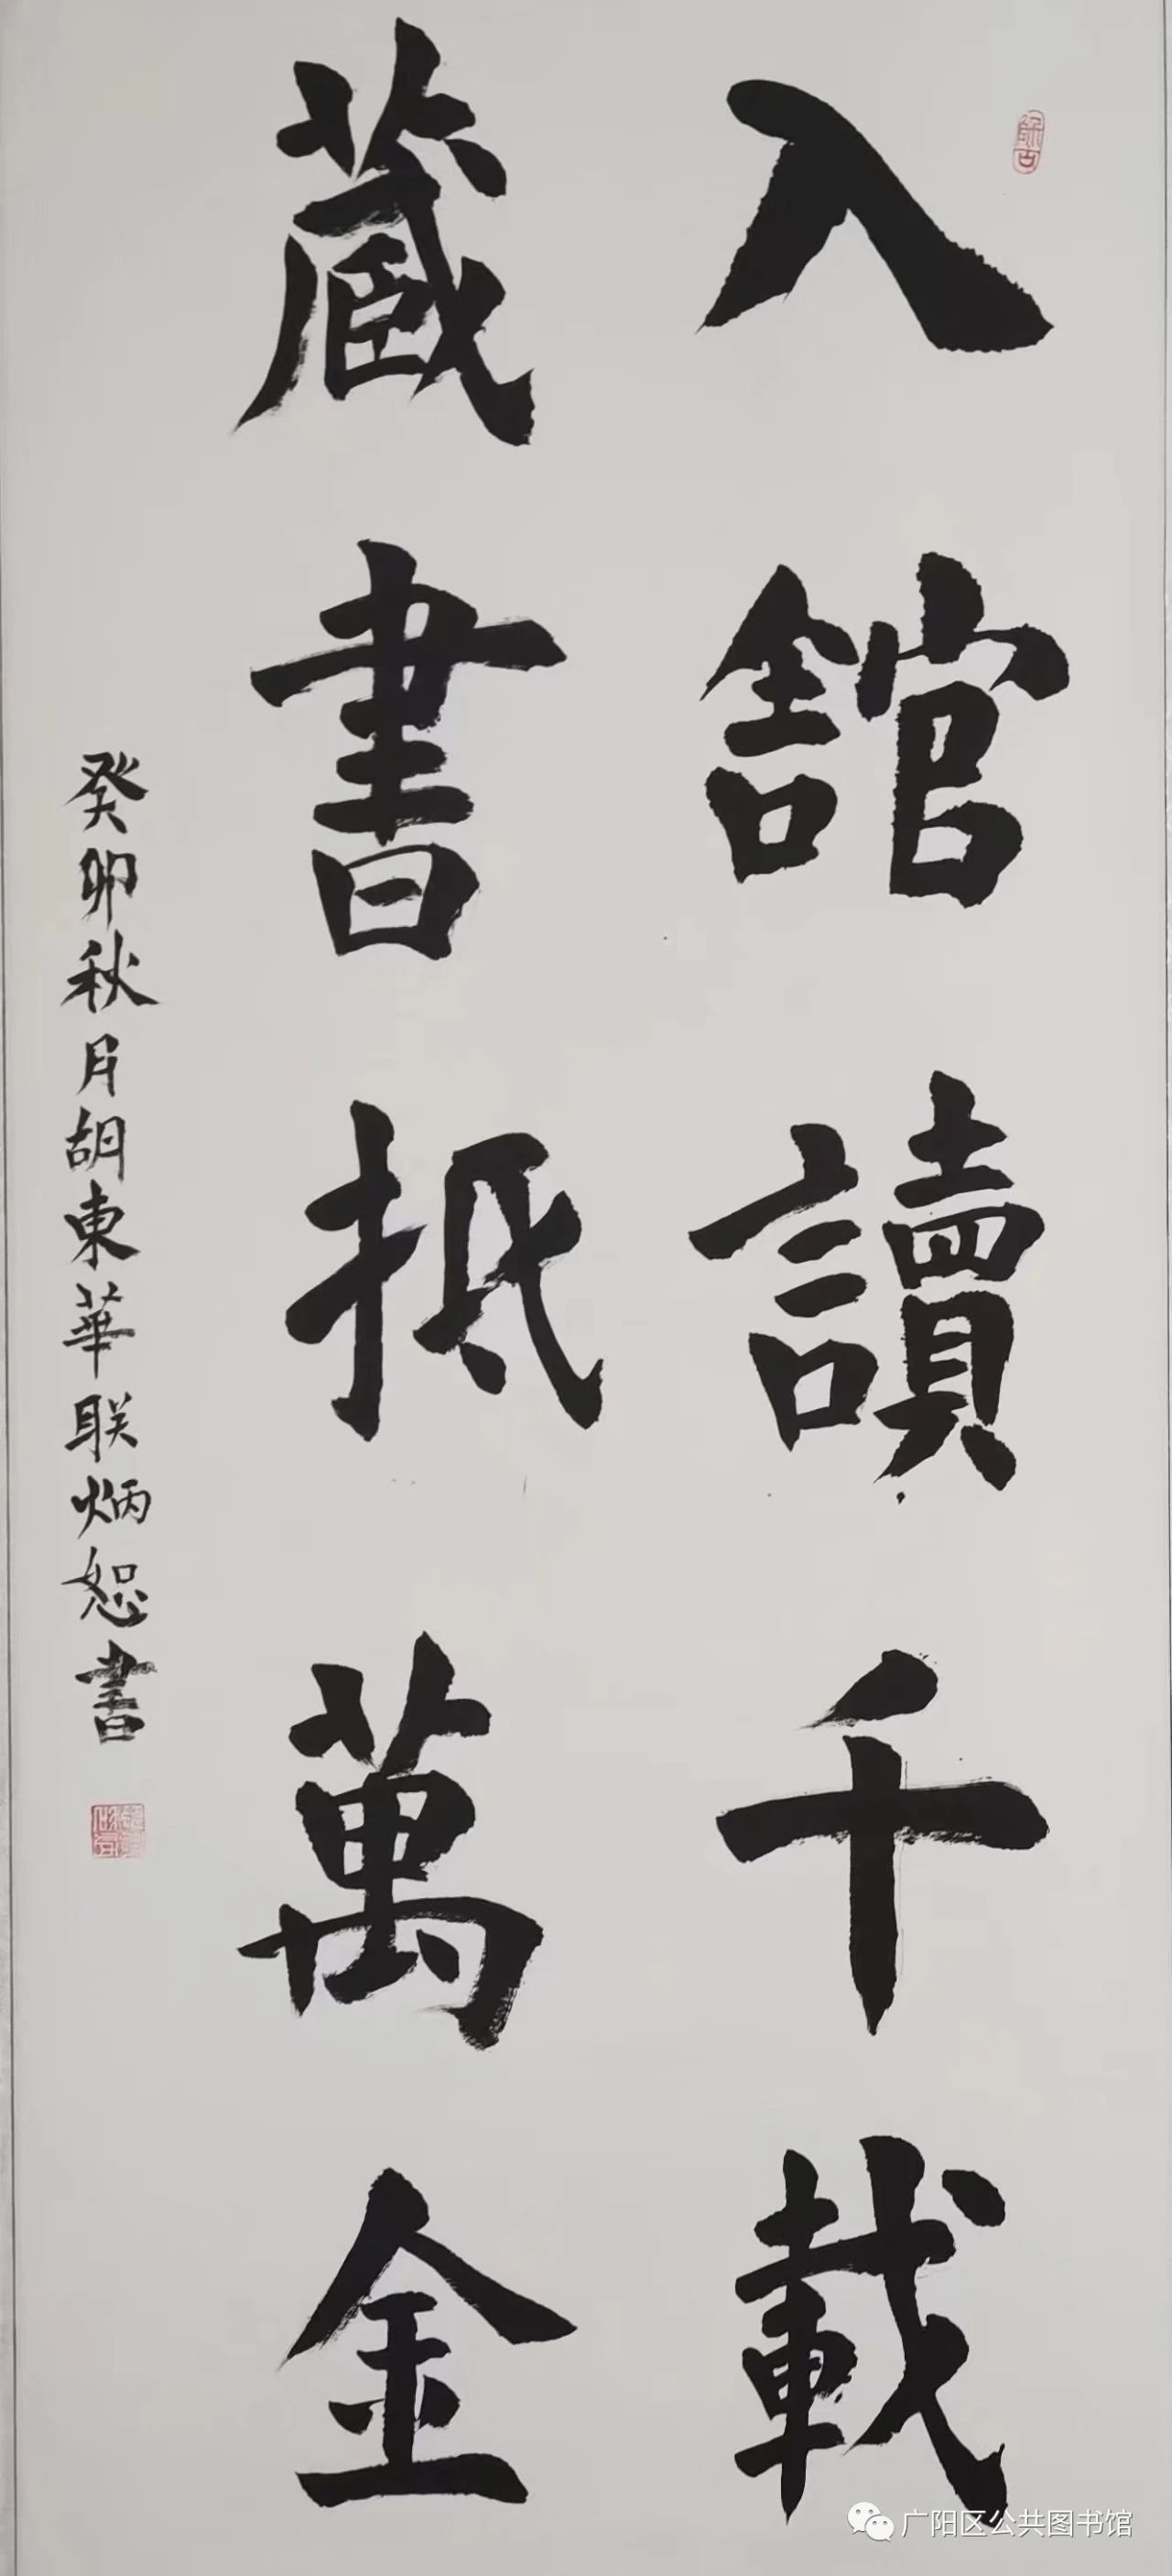 入舘讀千載
藏書抵萬金
癸卯秋月胡東華联炳恕書
師古
广阳区公共图书馆